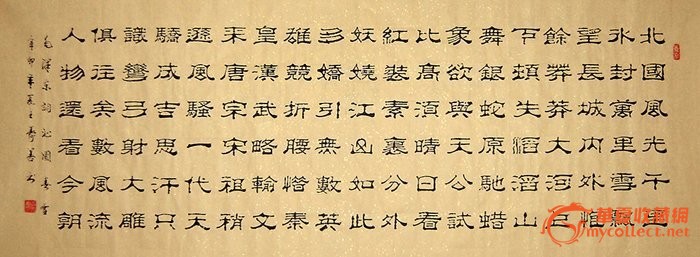 北國風光千里
冰封萬里雪飄
望長城內外惟
餘莽莽大河上
下頓失滔滔山
舞銀蛇原馳蜡
象欲與天公試
比高須晴日看
紅裝素裹分外
妖嬈江山如此
多嬌引無數英
雄競折腰惜秦
皇漢武略輸文
采唐宗宋祖稍
遜風騷一代天
驕成吉思汗只
識彎弓射大雕
俱往矣數風流
人物還看今朝
毛澤東詞沁園春雪
辛卯年夏王壽善書
華夏收藏網
mycollect.net